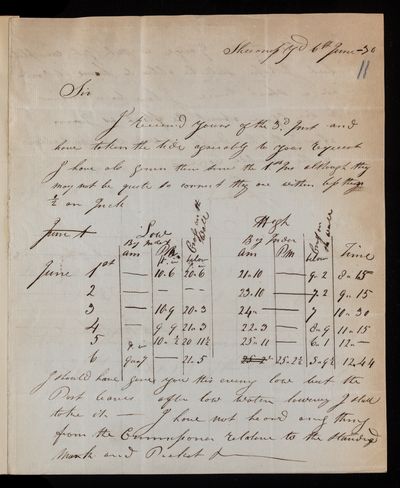 Sheerness Yd 6th June -30
11
Sir
I received yours of the 3d Inst and
have taken the tide agreeably to your request
I have also given them since the 1st Ins although they
may not be quite so correct they are within less than
½ an Inch
June 1
Low High
By Index By Index
am PM below am PM below Time
June 1st — 10.6 20.6 21.10 — 9.2 8.. 15
2 — — — 23.10 — 7.2 9.. 15
3 — 10.9 20..3 24.. — 7 10..30
4 — 9.9 21..3 22.3 — 8..9 11..15
5 10..½ 20 11½ 25..11 — 6..1 12..—
6 — 21..5 25..2½ 5..9½ 12..44
I should have gave you this evening low but the
Post leaves after low water
take it — I have not heard any thing
from the Commissioner relative to the Standing
Mark and